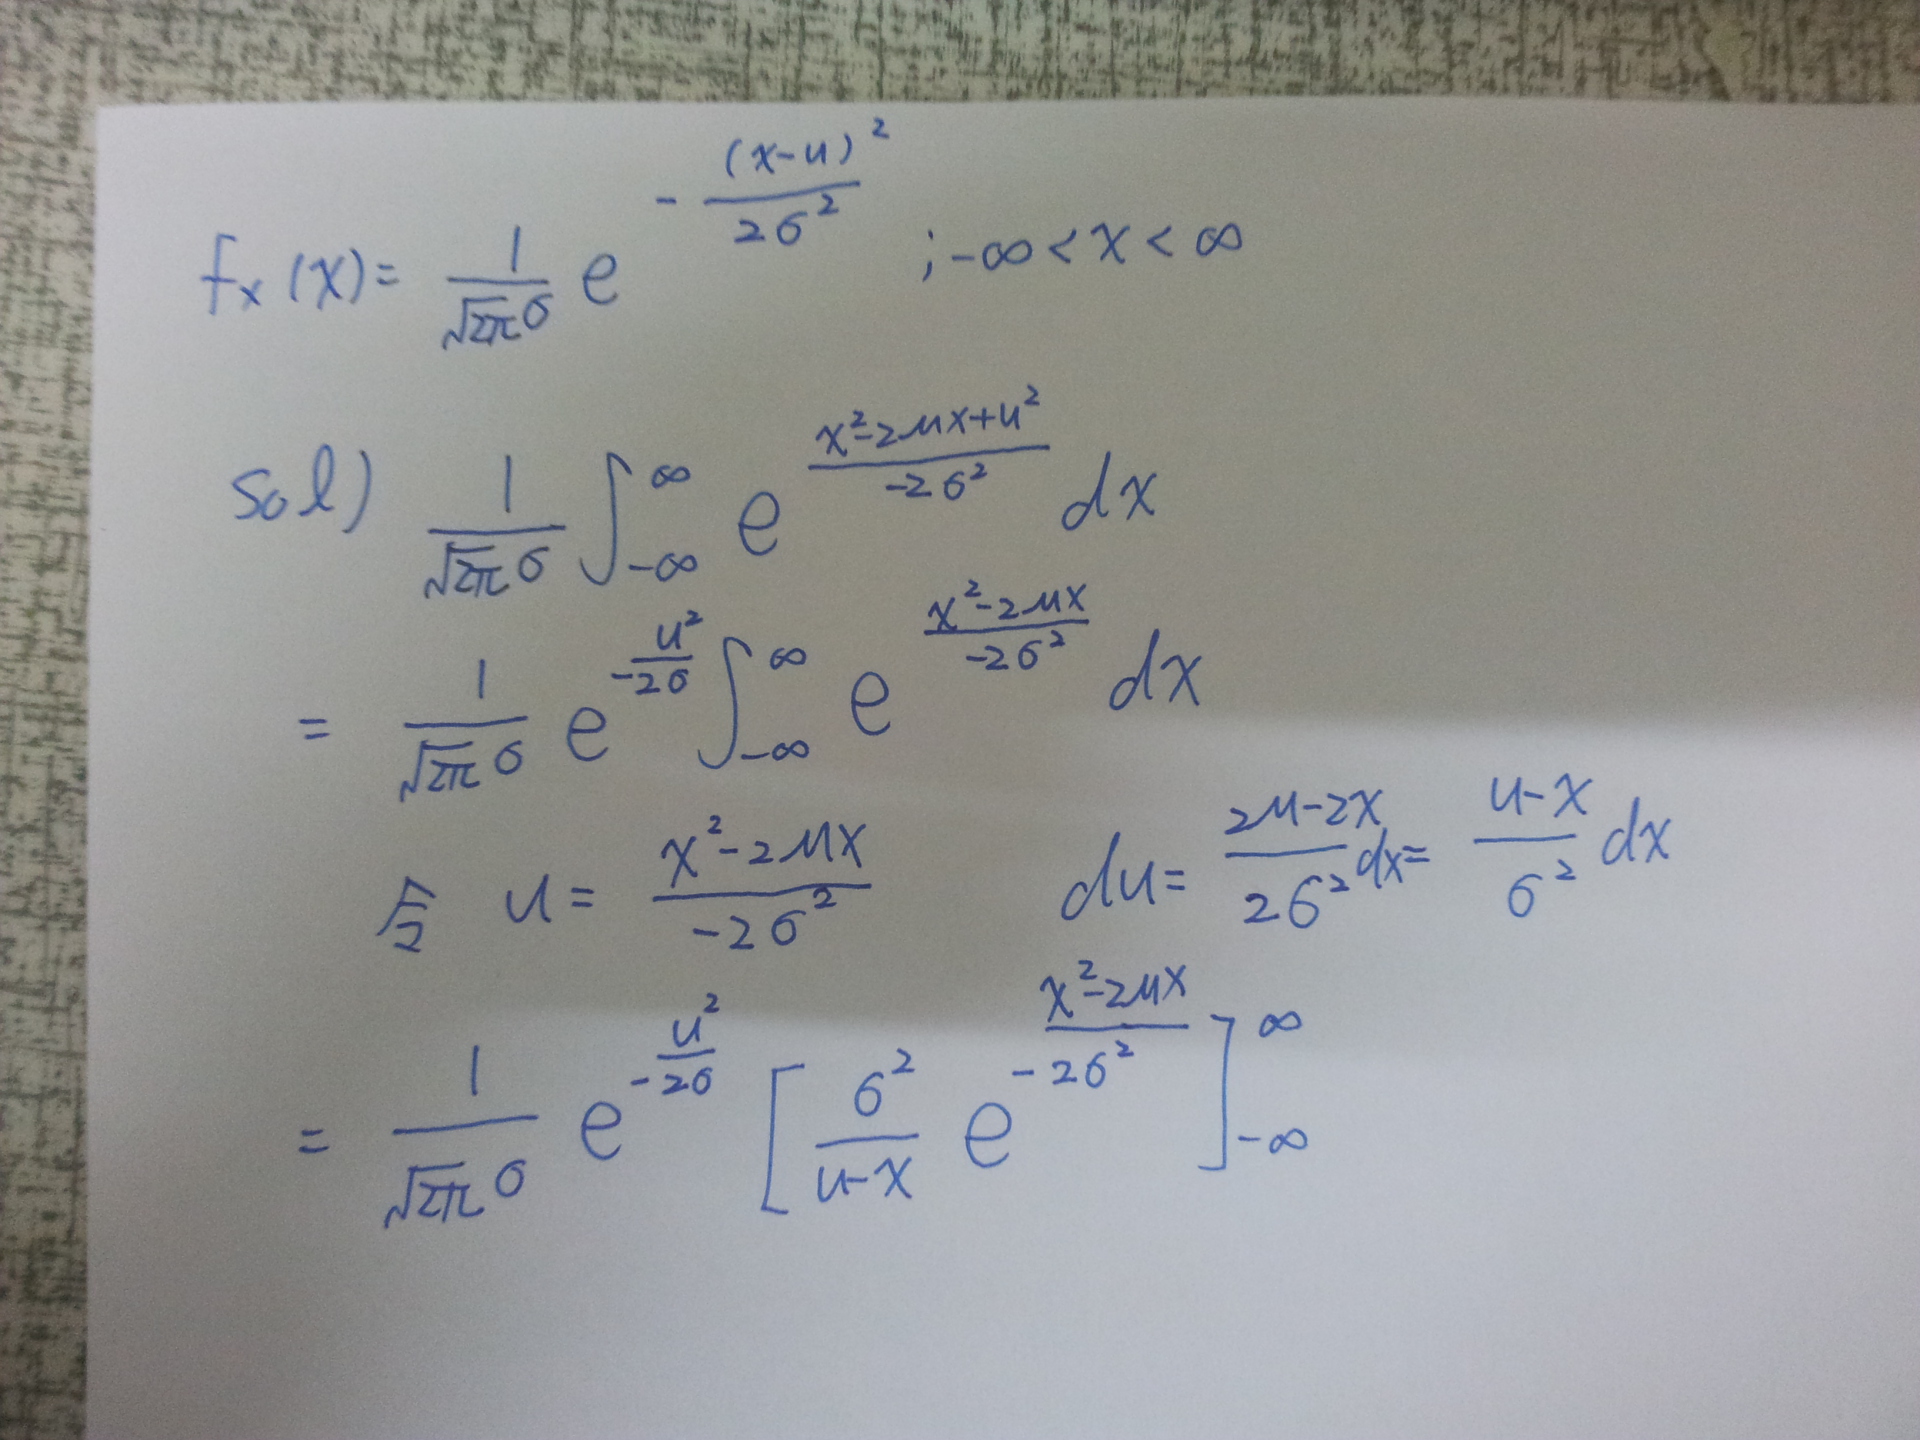 fx(x) = \frac{1}{\sqrt{2π}σ} e^{-\frac{(x-u)^2}{2σ^2}} ; -∞ < x < ∞
sol) \frac{1}{\sqrt{2π}σ} ∫_{-∞}^{∞} e^{\frac{x^2-2μx+u^2}{-2σ^2}} dx
= \frac{1}{\sqrt{2π}σ} e^{-\frac{u^2}{2σ}} ∫_{-∞}^{∞} e^{\frac{x^2-2μx}{-2σ^2}} dx
令 u = \frac{x^2-2μx}{-2σ^2} du = \frac{2μ-2x}{2σ^2} dx = \frac{u-x}{σ^2} dx
= \frac{1}{\sqrt{2π}σ} e^{-\frac{u^2}{2σ}} [ \frac{σ^2}{u-x} e^{\frac{x^2-2μx}{-2σ^2}} ]_{-∞}^{∞}